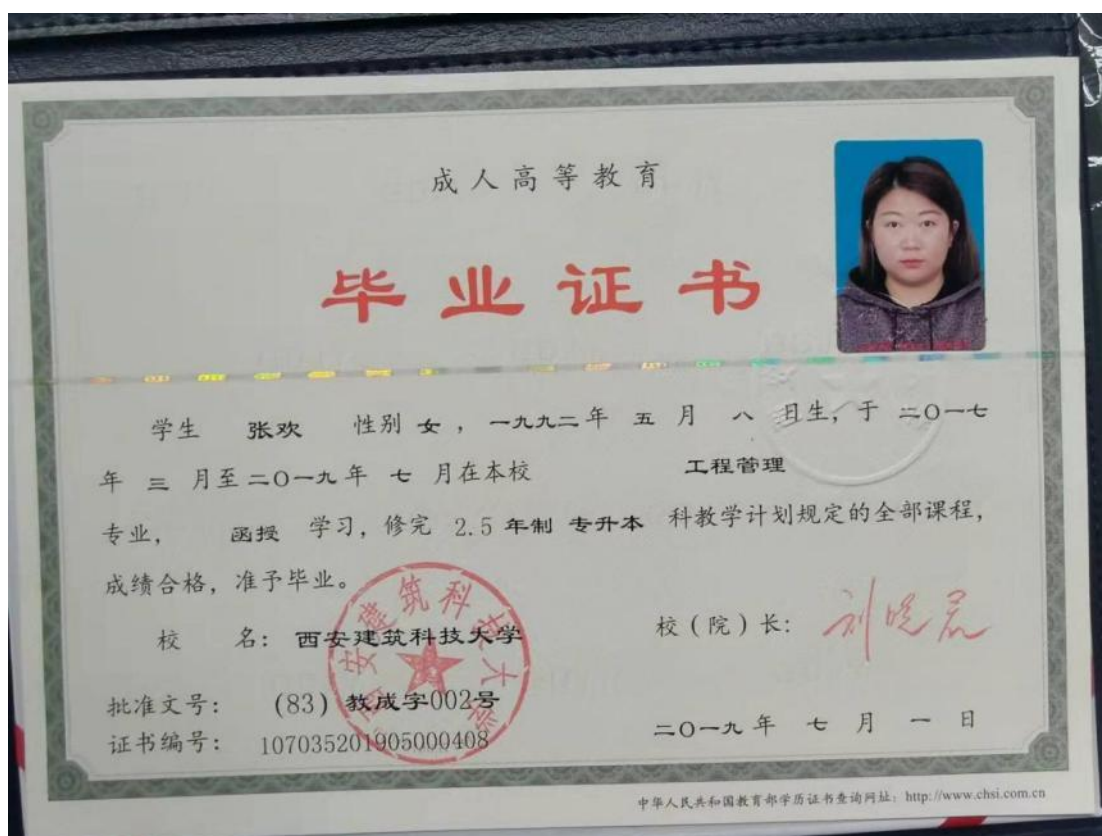 成人高等教育
毕业证书
学生 张欢 性别 女 ，一九九二年 五 月 八 日生，于 二〇一七
年 三 月至 二〇一九年 七 月在本校 工程管理
专业， 函授 学习，修完 2.5 年制 专升本 科教学计划规定的全部课程，
成绩合格，准予毕业。
校 名： 西安建筑科技大学
校（院）长： 刘晓君
西安建筑科技大学
批准文号： (83) 教成字002号
证书编号： 107035201905000408
二〇一九年 七 月 一 日
中华人民共和国教育部学历证书查询网址：http://www.chsi.com.cn